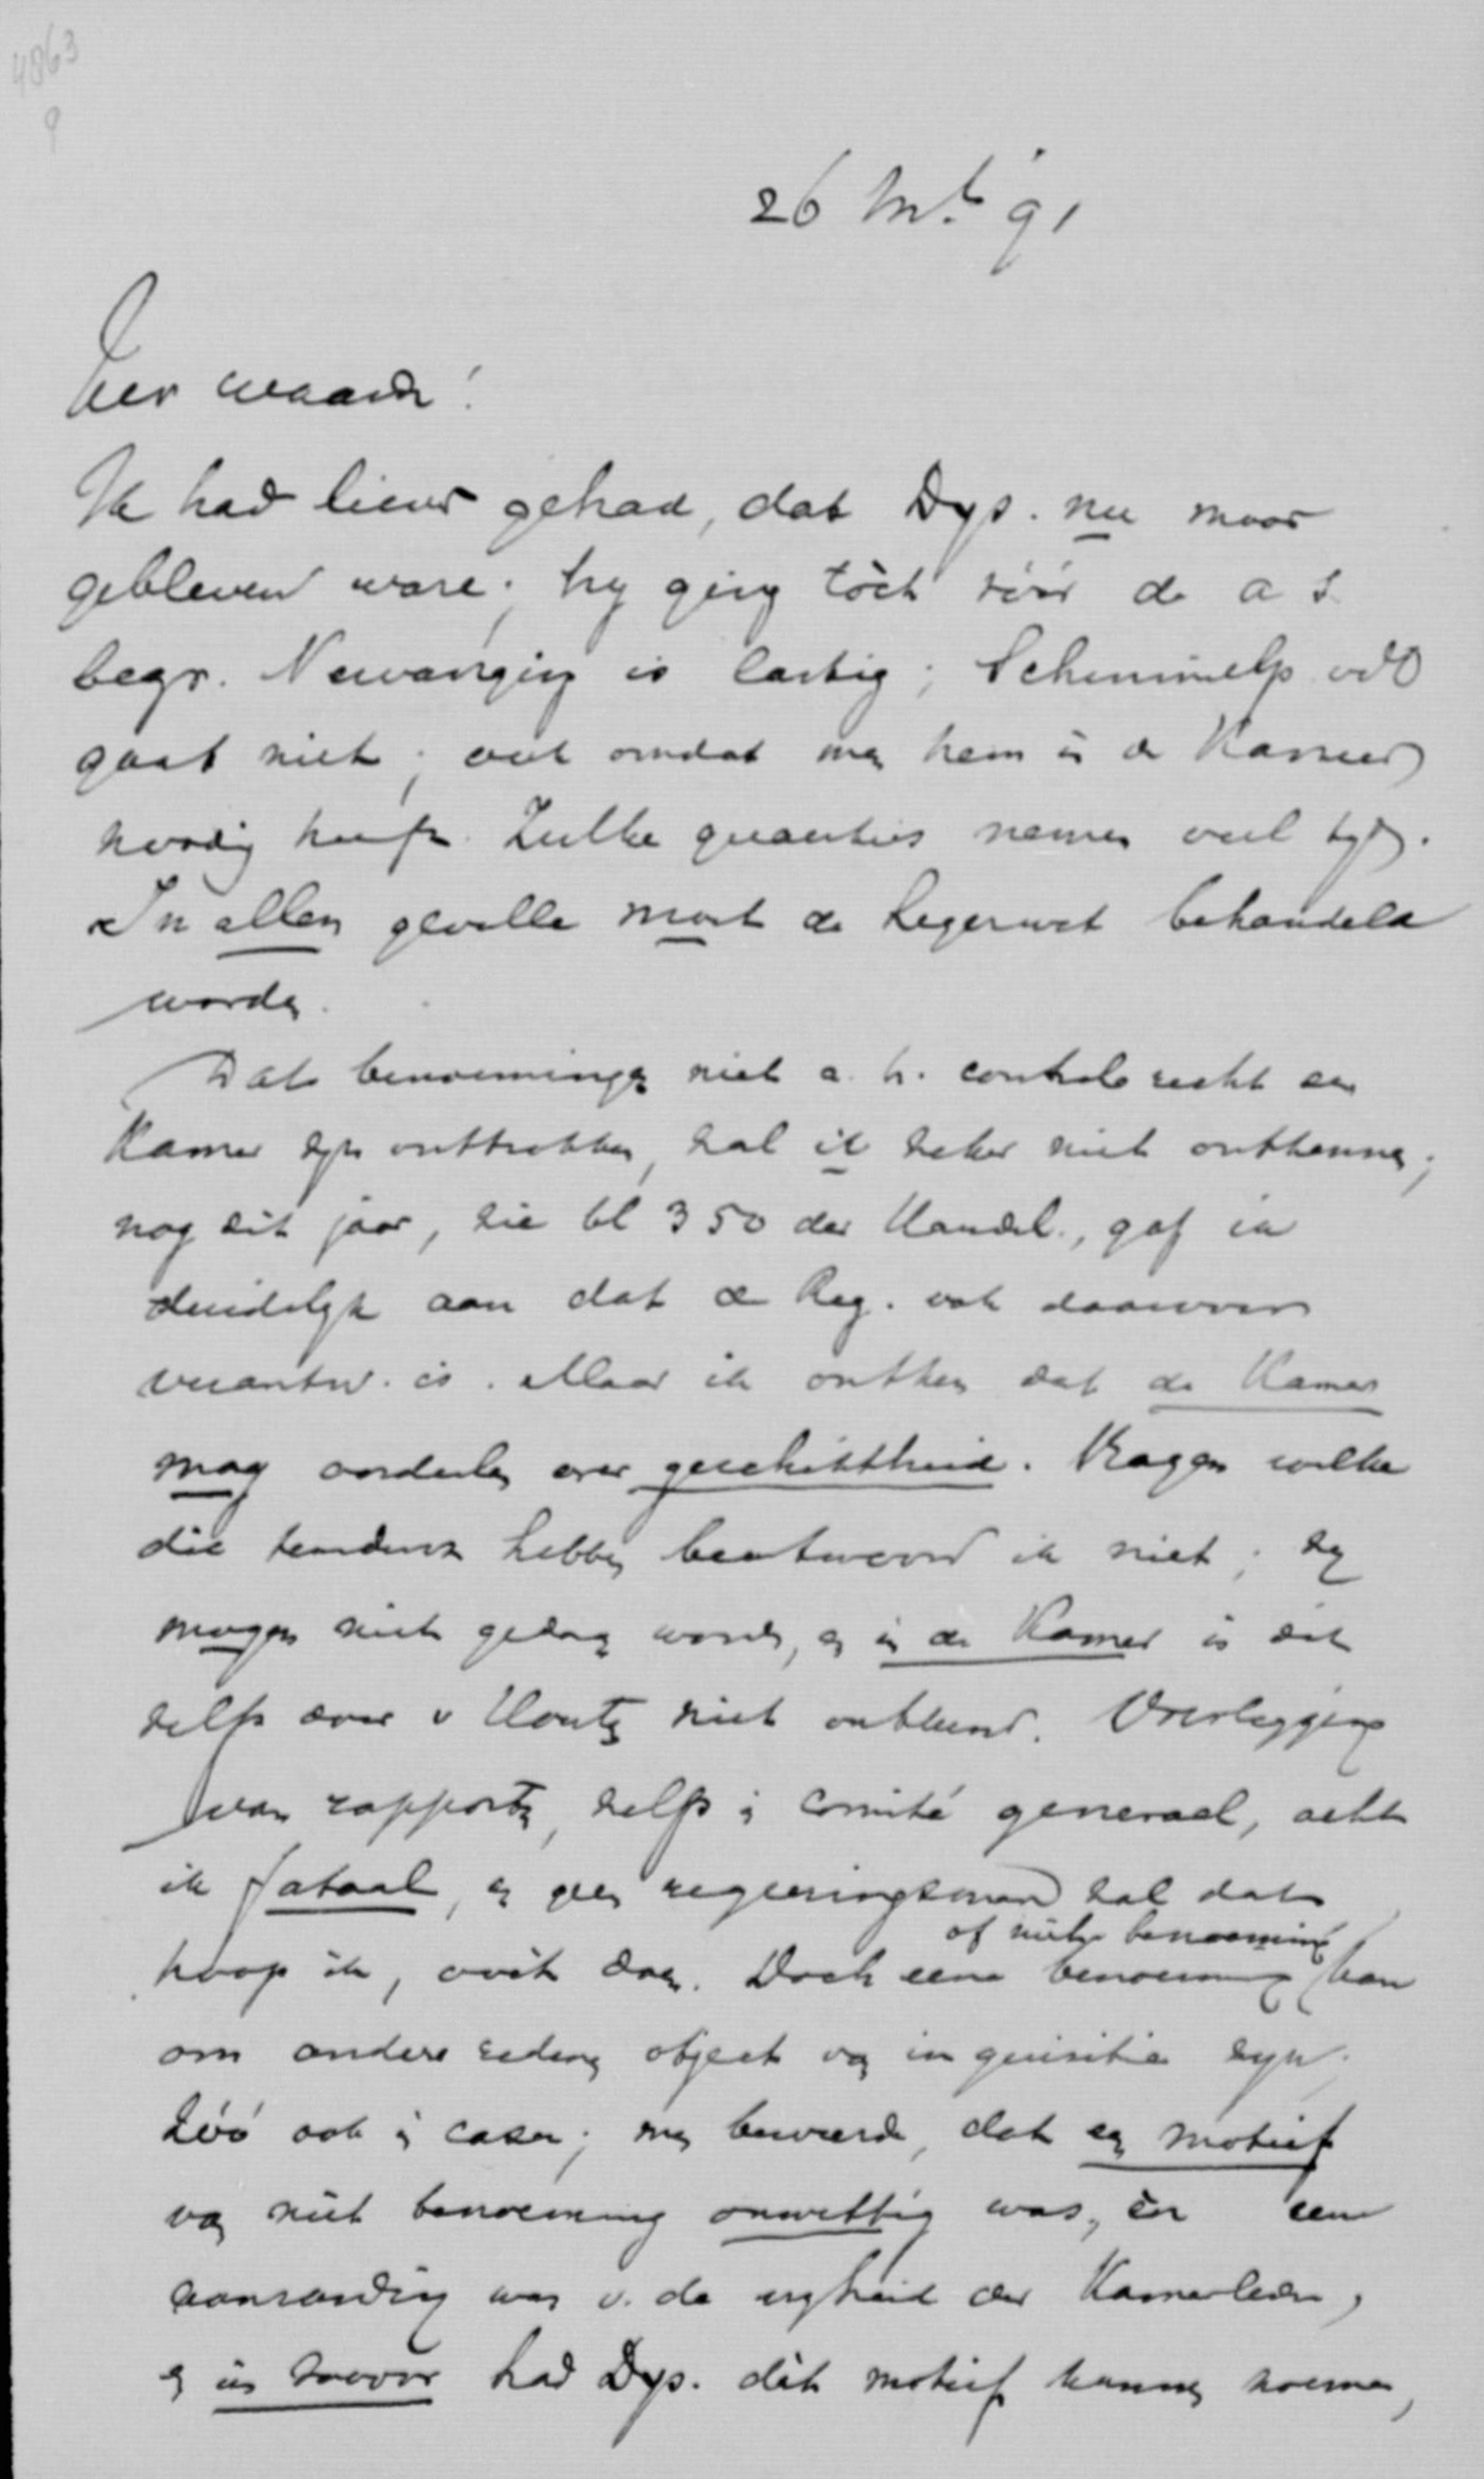 4863
26 Mrt 91
Zeer waarde!
Ik had liever gehad, dat Dys. nu maar
gebleven ware; hy ging tòch vóór de a s
begr. Vervanging is lastig; Schimmelp. vdO
gaat niet; ook omdat men hem in de Kamer
noodig heeft. Zulke quaesties nemen veel tyd.
In allen gevalle moet de Legerwet behandeld
worden.
Dat benoemingen niet a. h. controle recht der
Kamer zyn onttrokken, zal ik zeker niet ontkennen;
nog dit jaar, zie bl 350 der Handel., gaf ik
duidelyk aan dat de Reg. ook daarvoor
verantw. is. Maar ik ontken dat de Kamer
mag oordeelen over geschiktheid. Vragen welke
die tendenz hebben beantwoord ik niet; zy
mogen niet gedaan worden, en in de Kamer is dit
zelfs door v Houten niet ontkend. Overlegging
van rapporten, zelfs in comité generaal, acht
ik fataal, en geen regeeringsman zal dat
hoop ik, ooit doen. Doch eene benoeming of niet benoeming kan
om andere redenen object van inquisitie zyn.
Zóó ook in casu; men beweerde, dat een motief
van niet benoeming onwettig was, èn eene
aanranding was v. de vryheid der Kamerleden,
en had Dys. dit motief kunnen noemen,